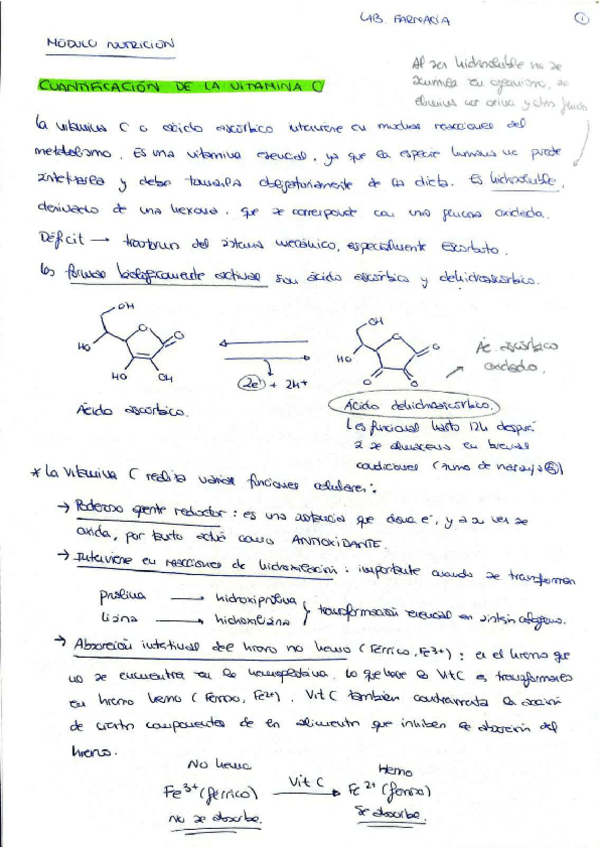 LAB. FARMACIA
1
MÓDULO NUTRICIÓN
Al ser hidrosoluble no se
acumula en organismo, se
elimina con orina y otros fluidos
CUANTIFICACIÓN DE LA VITAMINA C
La vitamina C o ácido ascórbico interviene en muchas reacciones del
metabolismo. Es una vitamina esencial, ya que la especie humana no puede
sintetizarla y debe tomarla obligatoriamente de la dieta. Es hidrosoluble,
derivado de una hexosa, que se corresponde con una glucosa oxidada.
Déficit → trastorno del sistema, especialmente escorbuto.
Las formas biológicamente activas son ácido ascórbico y dehidroascórbico.
OH
O
O
HO
HO
OH
2e⁻ + 2H⁺
OH
O
O
HO
O
O
Ác. ascórbico
oxidado.
Ácido ascórbico.
Ácido dehidroascórbico.
Es funcional hasta 12h después
si se almacena en buenas
condiciones (zumo de naranja)
* La vitamina C realiza varias funciones celulares:
→ Poderoso agente reductor: es una sustancia que dona e⁻, y a su vez se
oxida, por tanto actúa como ANTIOXIDANTE.
→ Interviene en reacciones de hidroxilación: importante cuando se transforman
prolina → hidroxiprolina
lisina → hidroxilisina
} transformación esencial en síntesis colágeno.
→ Absorción intestinal del hierro no hemo (Férrico, Fe³⁺): es el hierro que
no se encuentra en la hemoglobina. Lo que hace la Vit C es transformarlo
en hierro hemo (Ferroso, Fe²⁺). Vit C también contrarresta la acción
de ciertos componentes de en alimento que inhiben la absorción del
hierro.
No hemo
Hemo
Fe³⁺ (férrico) Vit C → Fe²⁺ (ferroso)
no se absorbe.
Se absorbe.